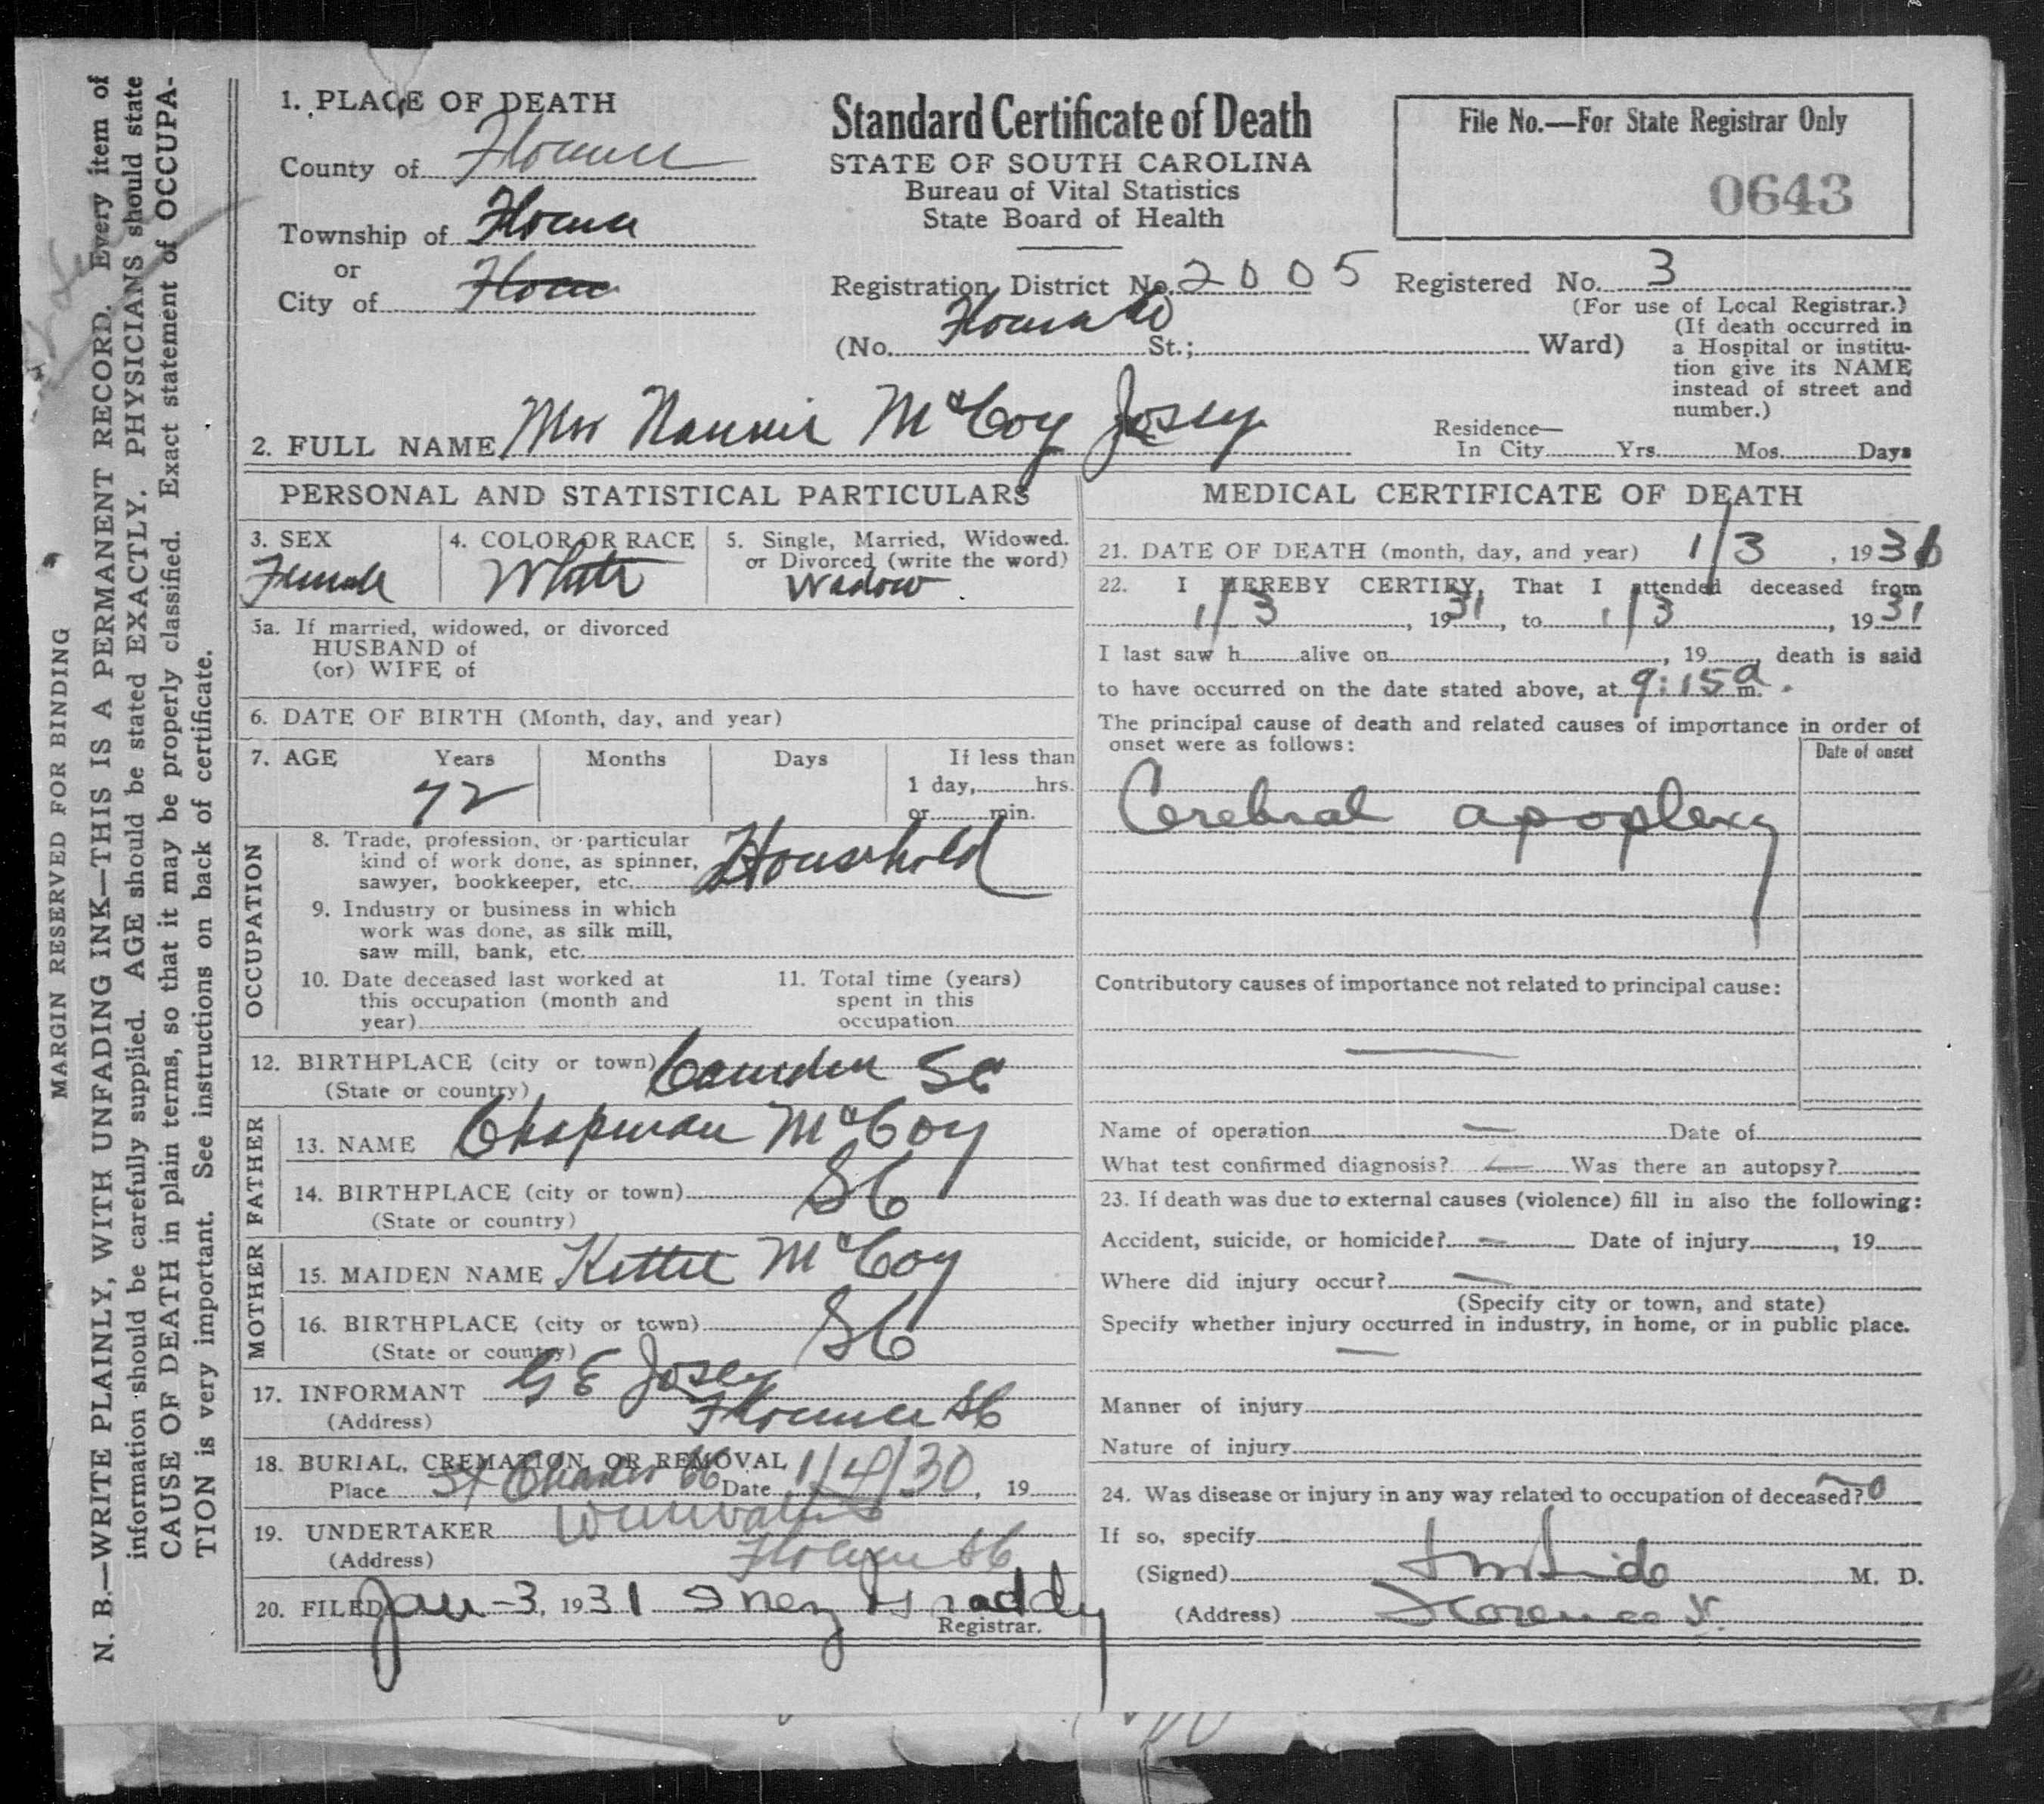 MARGIN RESERVED FOR BINDING
N. B.—WRITE PLAINLY, WITH UNFADING INK—THIS IS A PERMANENT RECORD. Every item of
information should be carefully supplied. AGE should be stated EXACTLY. PHYSICIANS should state
CAUSE OF DEATH in plain terms, so that it may be properly classified. Exact statement of OCCUPA-
TION is very important. See instructions on back of certificate.
1. PLACE OF DEATH
County of Florence
Township of Florence
or
City of
Standard Certificate of Death
STATE OF SOUTH CAROLINA
Bureau of Vital Statistics
State Board of Health
File No.—For State Registrar Only
0643
Registration District No. 2005 Registered No. 3
(For use of Local Registrar.)
(No. St.; Ward)
(If death occurred in
a Hospital or institu-
tion give its NAME
instead of street and
number.)
2. FULL NAME Mrs Nannie McCoy Josey
Residence—
In City Yrs. Mos. Days
PERSONAL AND STATISTICAL PARTICULARS
3. SEX
Female
4. COLOR OR RACE
White
5. Single, Married, Widowed.
or Divorced (write the word)
Widow
5a. If married, widowed, or divorced
HUSBAND of
(or) WIFE of
6. DATE OF BIRTH (Month, day, and year)
7. AGE Years Months Days If less than
72
1 day, hrs.
or min.
OCCUPATION
8. Trade, profession, or particular
kind of work done, as spinner,
sawyer, bookkeeper, etc. Household
9. Industry or business in which
work was done, as silk mill,
saw mill, bank, etc.
10. Date deceased last worked at
this occupation (month and
year)
11. Total time (years)
spent in this
occupation
12. BIRTHPLACE (city or town) Camden SC
(State or country)
FATHER
13. NAME Chapman McCoy
14. BIRTHPLACE (city or town) SC
(State or country)
MOTHER
15. MAIDEN NAME Kittie McCoy
16. BIRTHPLACE (city or town) SC
(State or country)
17. INFORMANT G E Josey
(Address) Florence SC
18. BURIAL, CREMATION, OR REMOVAL
Place St Charles SC Date 1/4/30, 19
19. UNDERTAKER
(Address) Florence SC
20. FILED Jan-3, 1931 Inez Graddy
Registrar.
MEDICAL CERTIFICATE OF DEATH
21. DATE OF DEATH (month, day, and year) 1/3, 193
22. I HEREBY CERTIFY, That I attended deceased from
1/3, 1931, to 1/3, 1931
I last saw h alive on , 19 , death is said
to have occurred on the date stated above, at 9:15 a m.
The principal cause of death and related causes of importance in order of
onset were as follows:
Date of onset
Cerebral apoplexy
Contributory causes of importance not related to principal cause:
—
Name of operation — Date of
What test confirmed diagnosis? — Was there an autopsy?
23. If death was due to external causes (violence) fill in also the following:
Accident, suicide, or homicide? — Date of injury , 19
Where did injury occur? —
(Specify city or town, and state)
Specify whether injury occurred in industry, in home, or in public place.
—
Manner of injury
Nature of injury
24. Was disease or injury in any way related to occupation of deceased? no
If so, specify
(Signed) M. D.
(Address) Florence